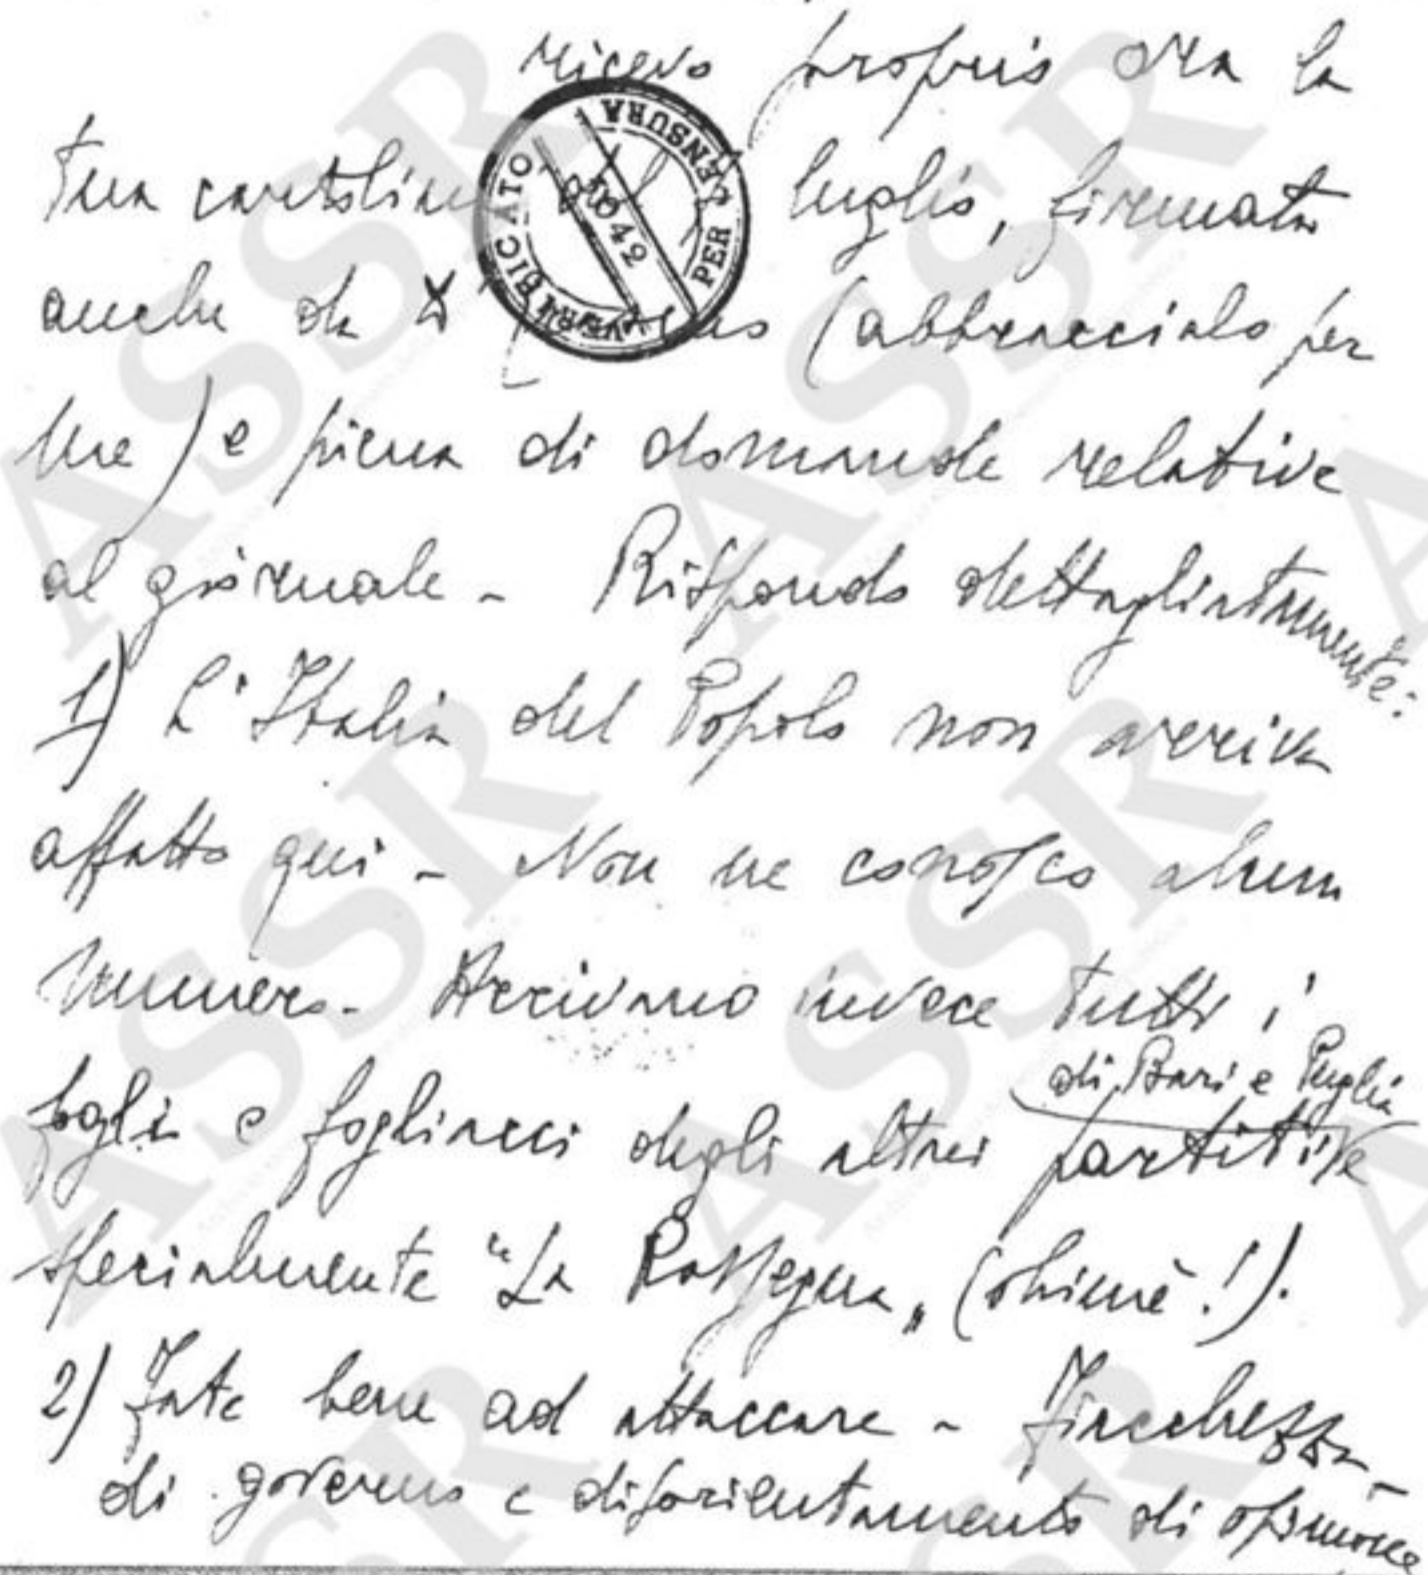 ricevo proprio ora la
tua cartolina luglio, firmata
anche da (abbraccialo per
me) e piena di domande relative
al giornale - Rispondo dettagliatamente:
1) L'Italia del Popolo non arriva
affatto qui - Non ne conosco alcun
numero - Arrivano invece tutti i
di Bari e Puglia
fogli e fogliacci degli altri partiti e
specialmente "La Rassegna" (ohimè!).
2) Fate bene ad attaccare - Fiacchezza
di governo e disorientamento di opinione
VERIFICATO PER CENSURA
ASSR